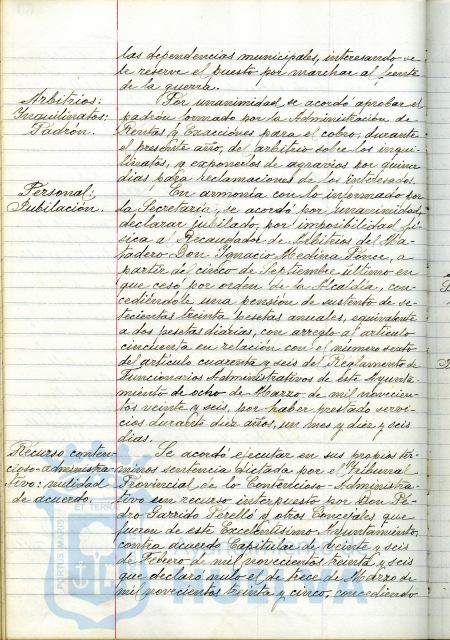 las dependencias municipales, interesando se
le reserve el puesto por marchar al frente
de la guerra.
Arbitrios:
Inquilinatos:
Padrón.
Por unanimidad se acordó aprobar el
padrón formado por la Administración de
Rentas y Exacciones para el cobro, durante
el presente año, del arbitrio sobre los inqui-
linatos, y exponerlos de agravios por quince
días para reclamaciones de los interesados.
Personal;
Jubilación.
En armonía con lo informado por
la Secretaría, se acordó por unanimidad,
declarar jubilado, por imposibilidad fí-
sica al Recaudador de Arbitrios del Ma-
tadero Don Ignacio Medina Ponce, a
partir del cinco de Septiembre último en
que cesó por orden de la Alcaldía, con-
cediéndole una pensión de sustento de se-
tecientas treinta pesetas anuales, equivalente
a dos pesetas diarias, con arreglo al artículo
cincuenta en relación con el número sexto
del artículo cuarenta y seis del Reglamento de
Funcionarios Administrativos de este Ayunta-
miento de ocho de Marzo de mil novecien-
tos veinte y seis, por haber prestado servi-
cios durante diez años, un mes y diez y seis
días.
Recurso conten-
cioso-administra-
tivo: nulidad
de acuerdo.
Se acordó ejecutar en sus propios tér-
minos sentencia dictada por el Tribunal
Provincial de lo Contencioso-Administra-
tivo en recurso interpuesto por Don Pe-
dro Garrido Perelló y otros Concejales que
fueron de este Excelentísimo Ayuntamiento,
contra acuerdo Capitular de veinte y seis
de Febrero de mil novecientos treinta y seis
que declaró nulo el de trece de Marzo de
mil novecientos treinta y cinco, concediendo
PORTUS MARIS
ET TERRÆ
HUELVA